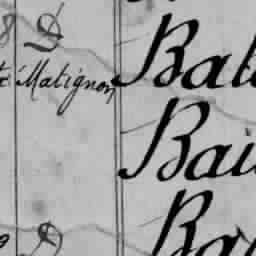 8 D
Bal
te Matignon
Bai
D
Ba